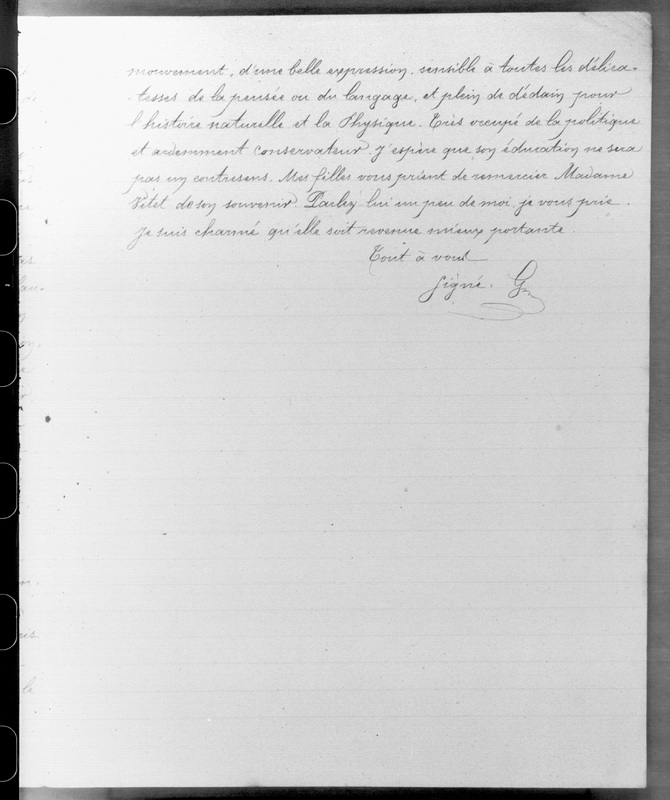 mouvement, d'une belle expression, sensible à toutes les délica-
tesses de la pensée ou du langage, et plein de dédain pour
l'histoire naturelle et la Physique. Très occupé de la politique
et ardemment conservateur. J'espère que son éducation ne sera
pas un contresens. Mes filles vous prient de remercier Madame
Vitet de son souvenir. Parlez lui un peu de moi, je vous prie.
Je suis charmé qu'elle soit revenue mieux portante.
Tout à vous
Signé. G